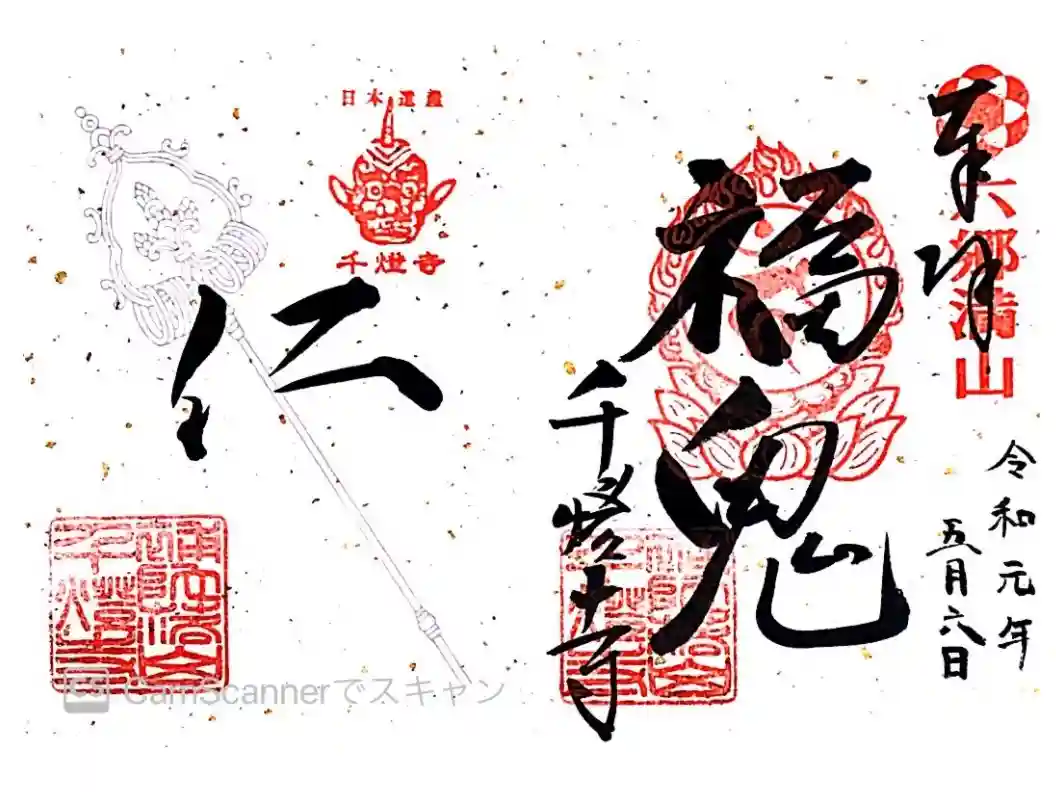 奉拝
六郷満山
令和元年
五月六日
福鬼
千燈寺
日本遺産
千燈寺
仁
CamScannerでスキャン